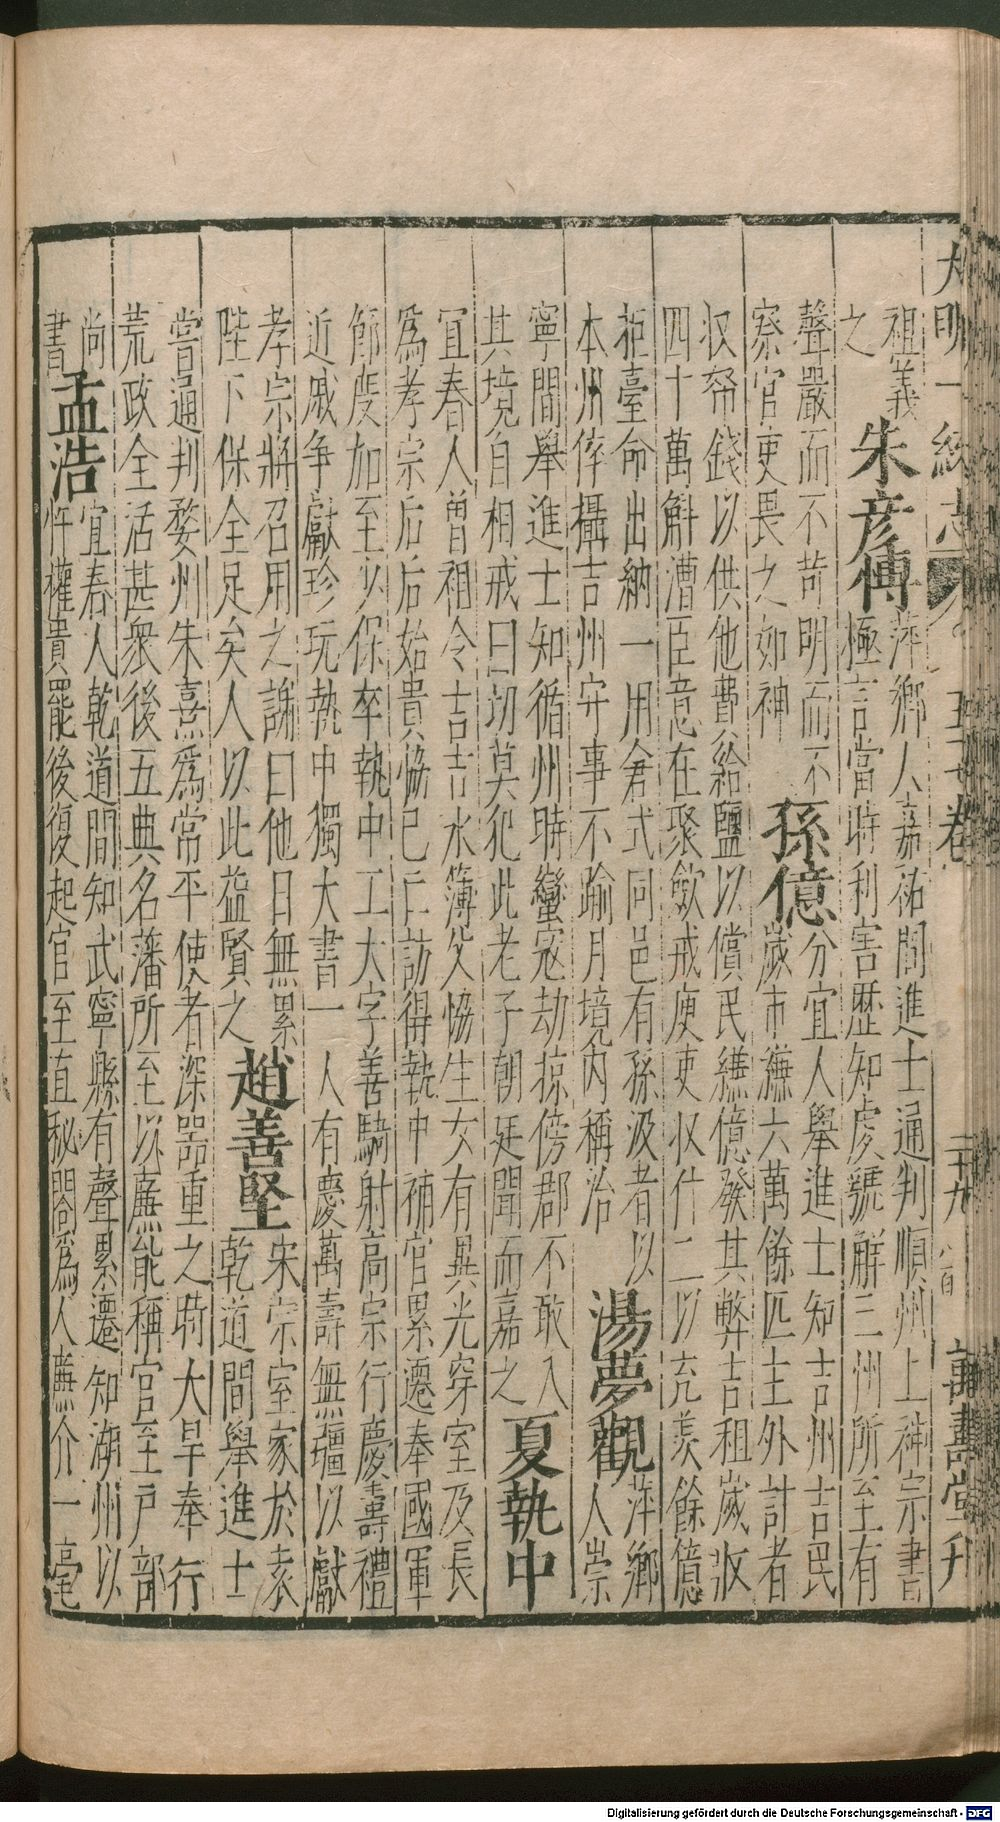 大明一統志 五十七卷 二十九 八百 萬壽堂刊
祖義
之
朱彥博
萍鄉人嘉祐間進士通判順州上神宗書
極言當時利害歷知虔虢解三州所至有
聲嚴而不苛明而不
察官吏畏之如神
孫億
分宜人舉進士知吉州吉民
歲市縑六萬餘匹土外計者
収帑錢以供他費給鹽以償民縑億發其弊吉租歲收
四十萬斛漕臣意在聚斂戒庾吏収什二以充羨餘億
拒臺命出納一用倉式同邑有孫汲者以
本州倅攝吉州守事不踰月境內稱治
湯夢觀
萍鄉
人崇
寧間舉進士知循州時蠻寇劫掠傍郡不敢入
其境自相戒曰切莫犯此老子朝廷聞而嘉之
夏執中
宜春人曾祖令吉吉水簿父協生女有異光穿室及長
為孝宗后后始貴協已亡訪得執中補官累遷奉國軍
節度加至少保卒執中工大字善騎射高宗行慶壽禮
近戚争獻珍玩執中獨大書一人有慶萬壽無疆以獻
孝宗將召用之謝曰他日無累
陛下保全足矣人以此益賢之
趙善堅
宋宗室家於袁
乾道間舉進士
嘗通判婺州朱熹為常平使者深器重之時大旱奉行
荒政全活甚衆後五典名藩所至以廉能稱官至戶部
尚
書
孟浩
宜春人乾道間知武寧縣有聲累遷知湖州以
忤權貴罷後復起官至直秘閣為人廉介一毫
Digitalisierung gefördert durch die Deutsche Forschungsgemeinschaft - DFG